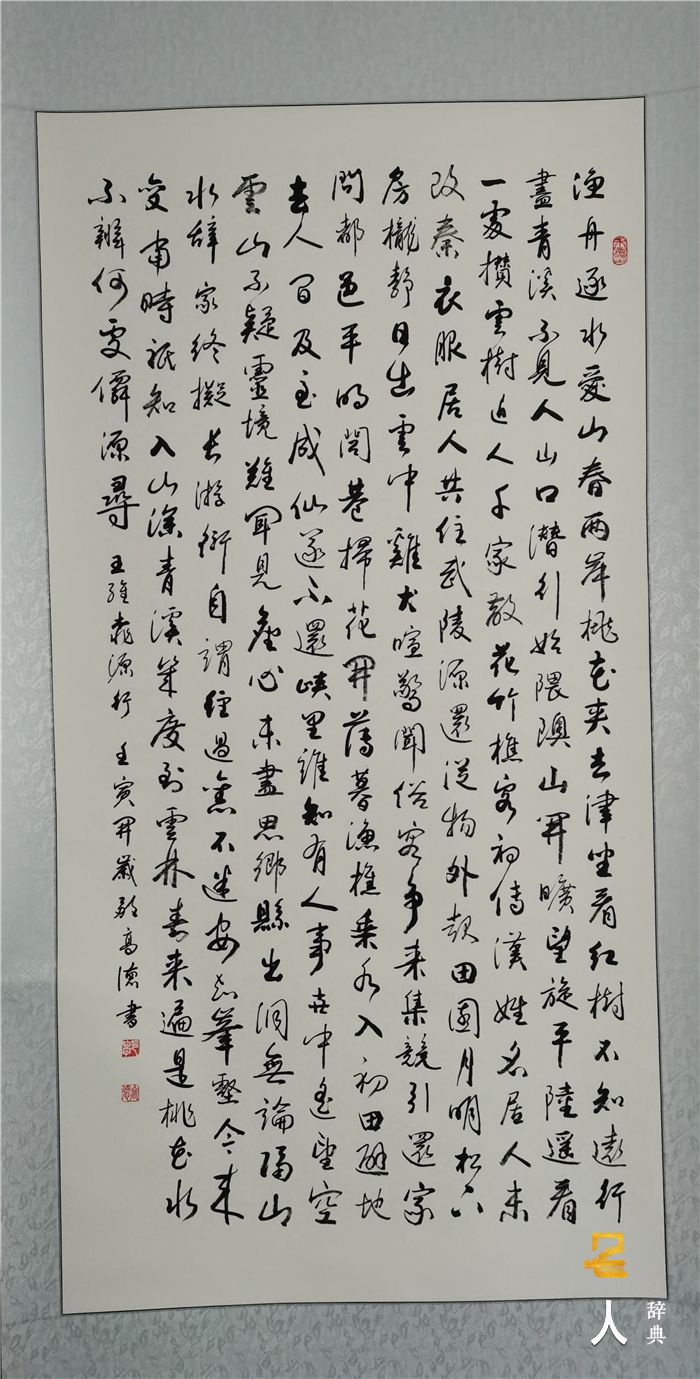 漁舟逐水愛山春兩岸桃花夾去津坐看紅樹不知遠行
盡青溪不見人山口潛行始隈隩山開曠望旋平陸遥看
一處攢雲樹近人千家散花竹樵客初傳漢姓名居人未
改秦衣服居人共住武陵源還從物外起田園月明松下
房櫳靜日出雲中雞犬喧驚聞俗客争来集競引還家
問都邑平明閭巷掃花開薄暮漁樵乘水入初因避地
去人間及至成仙遂不還峽里誰知有人事世中遥望空
雲山不疑靈境難聞見塵心未盡思鄉縣出洞無論隔山
水辭家終擬長游衍自謂經過舊不迷安知峯壑今来
變當時祇知入山深青溪幾度到雲林春来遍是桃花水
不辨何處僊源尋 王維桃源行 壬寅開歲 高德書
名人辞典